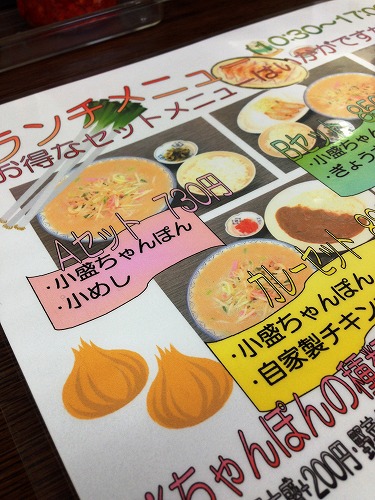 ランチメニュー
10:30～17:0
お得なセットメニュー
はいかがですか
Aセット 730円
・小盛ちゃんぽん
・小めし
Bセット
小盛ちゃん
ぎょう
カレーセット
・小盛ちゃんぽん
・自家製チキン
ちゃんぽんの種類
200円・野菜